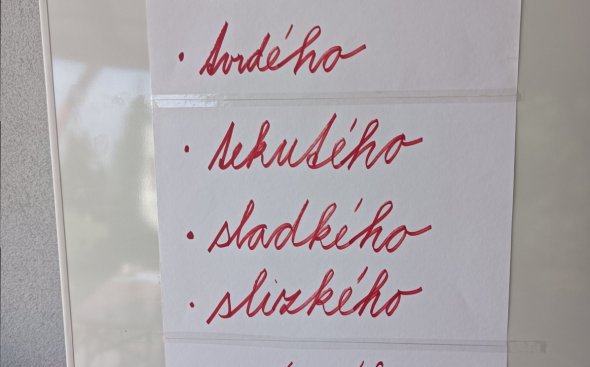 • tvrdého
• tekutého
• sladkého
• slizkého